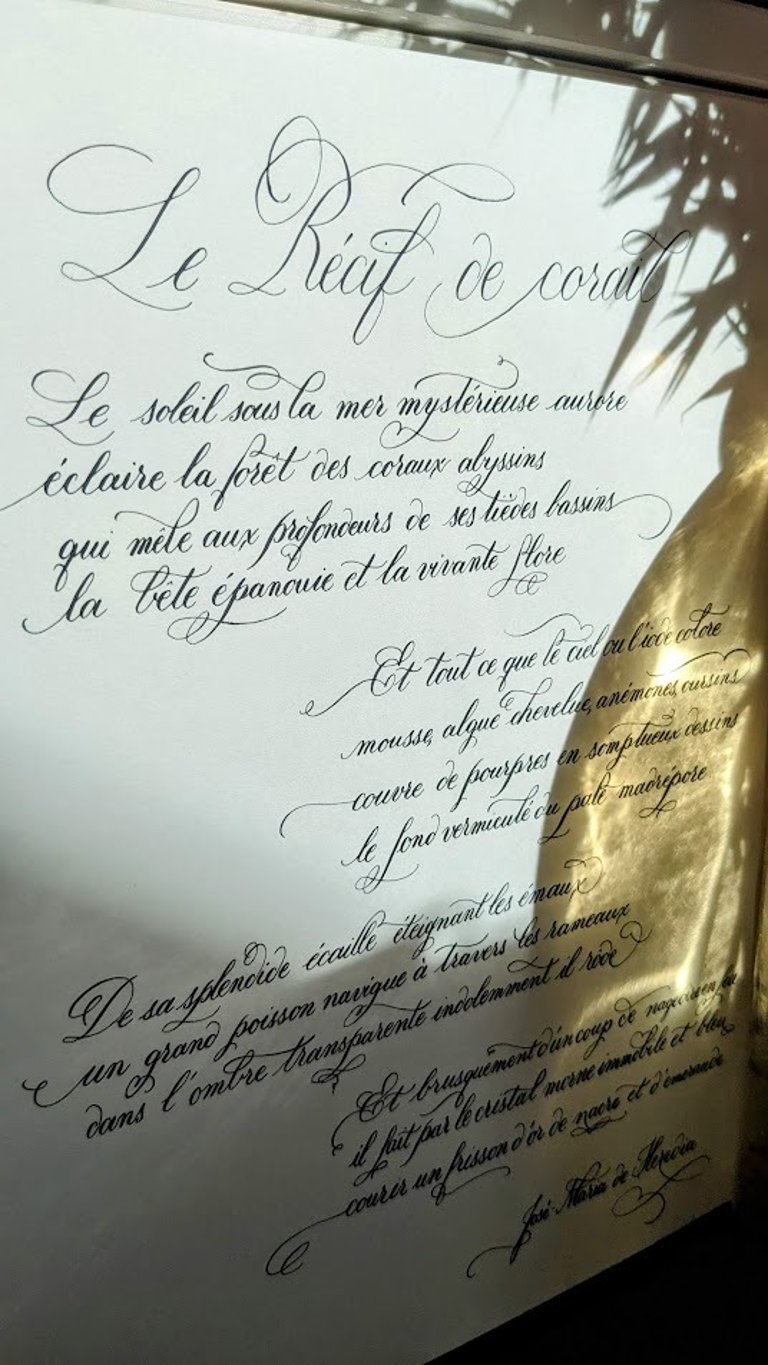 Le Récif de corail
Le soleil sous la mer mystérieuse aurore
éclaire la forêt des coraux abyssins
qui mêle aux profondeurs de ses tièdes bassins
la bête épanouie et la vivante flore
Et tout ce que le ciel ou l'iode colore
mousse, algue chevelue, anémones, oursins
couvre de pourpres en somptueux dessins
le fond vermiculé du pale madrépore
De sa splendide écaille éteignant les émaux
un grand poisson navigue à travers les rameaux
dans l'ombre transparente indolemment il rôde
Et brusquement d'un coup de nageoire en feu
il fait par le cristal morne immobile et bleu
courir un frisson d'or de nacre et d'émeraude
José Maria de Heredia